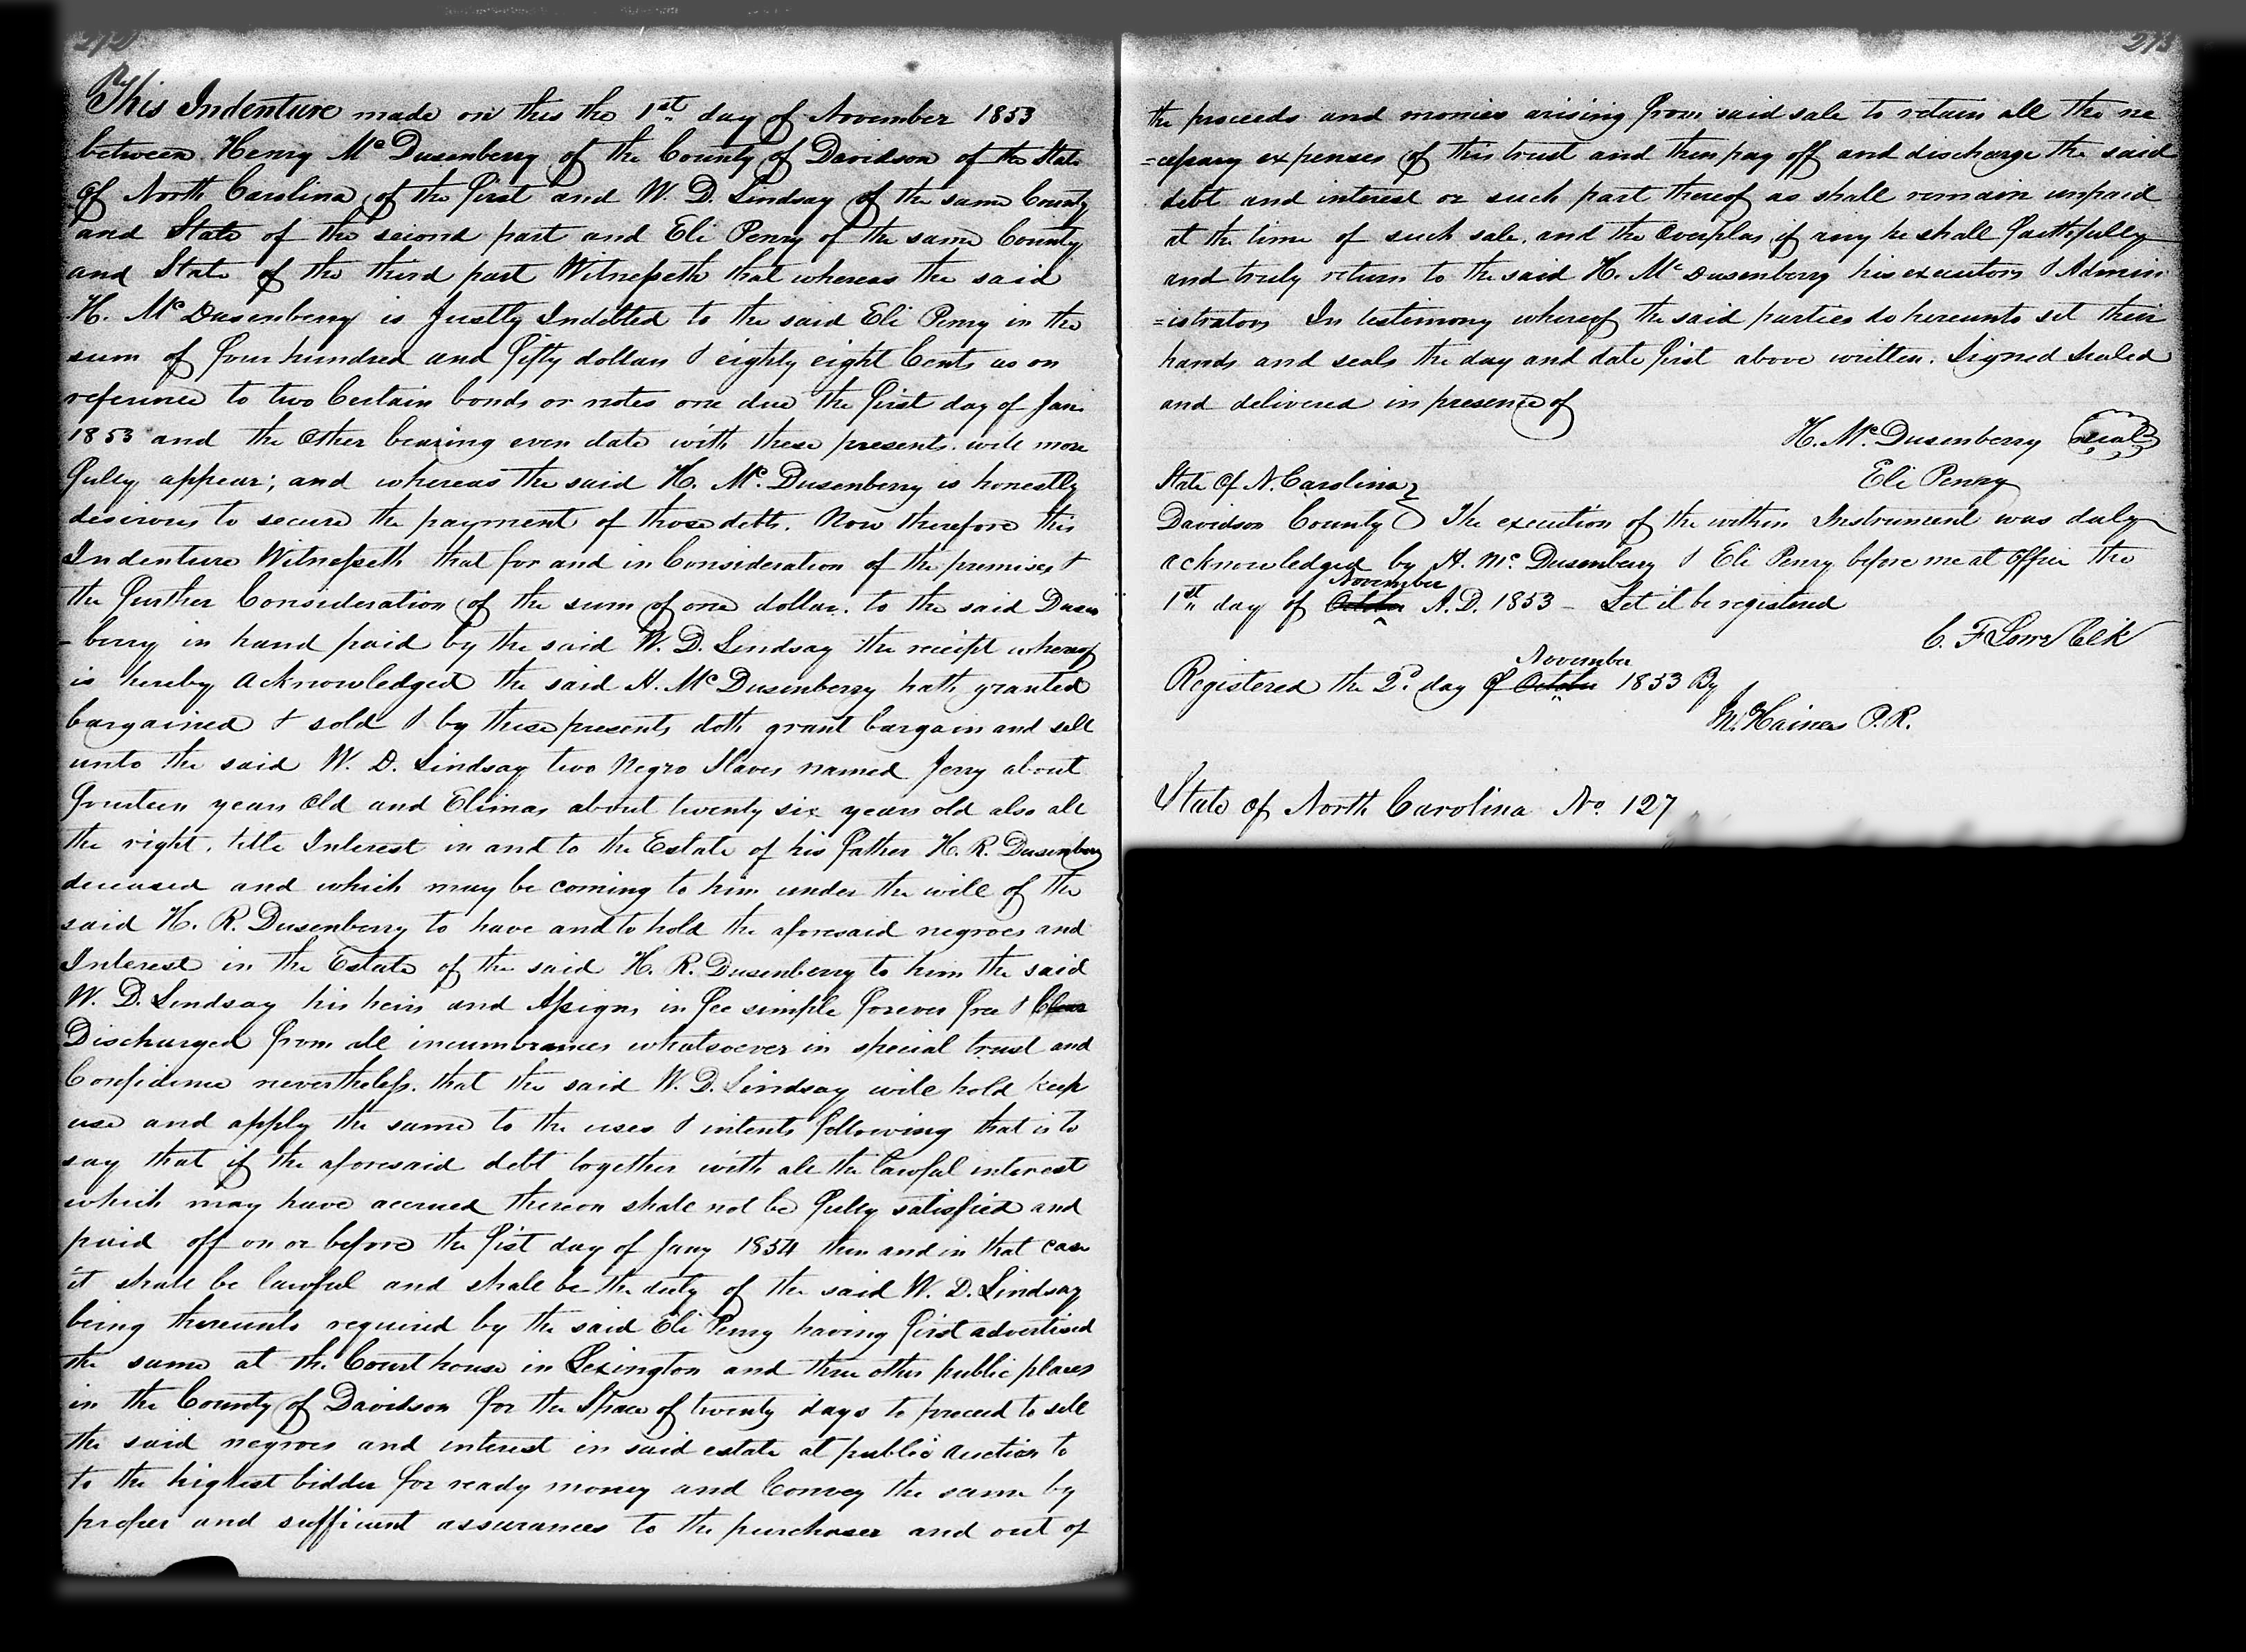 272
This Indenture made on this the 1st day of November 1853
between Henry Mc Dusenberry of the County of Davidson of the State
of North Carolina of the first and W. D. Lindsay of the same County
and State of the second part and Eli Penry of the same County
and State of the third part Witnesseth that whereas the said
H. Mc Dusenberry is Justly Indebted to the said Eli Penry in the
sum of four hundred and fifty dollars & eighty eight Cents as on
reference to two Certain bonds or notes one due the first day of Jan.
1853 and the Other bearing even date with these presents. will more
fully appear; and whereas the said H. Mc. Dusenberry is honestly
desirous to secure the payment of those debts. Now therefore this
Indenture Witnesseth that for and in Consideration of the premises &
the further Consideration of the sum of one dollar. to the said Dusen
-berry in hand paid by the said W. D. Lindsay the receipt whereof
is hereby acknowledged the said H. Mc Dusenberry hath granted
bargained & sold & by these presents doth grant bargain and sell
unto the said W. D. Lindsay two Negro Slaves named Jerry about
fourteen years Old and Elimas about twenty six years old also all
the right, title Interest in and to the Estate of his father H. R. Dusenberry
deceased and which may be coming to him under the will of the
said H. R. Dusenberry to have and to hold the aforesaid negroes and
Interest in the Estate of the said H. R. Dusenberry to him the said
W. D. Lindsay his heirs and Assigns in fee simple forever free & Clear
Discharged from all incumbrances whatsoever in special trust and
Confidence nevertheless. that the said W. D. Lindsay will hold keep
use and apply the same to the uses & intents following that is to
say that if the aforesaid debt together with all the lawful interest
which may have accrued thereon shall not be fully satisfied and
paid off on or before the fist day of Jany 1854 then and in that case
it shall be lawful and shall be the duty of the said W. D. Lindsay
being thereunto required by the said Eli Penry having first advertised
the same at the Court house in Lexington and three other public places
in the County of Davidson for the Space of twenty days to proceed to sell
the said negroes and interest in said estate at public auction to
to the highest bidder for ready money and Convey the same by
proper and sufficient assurances to the purchaser and out of
273
the proceeds and monies arising from said sale to retain all the ne
=cessary expenses of this trust and then pay off and discharge the said
debt and interest or such part thereof as shall remain unpaid
at the time of such sale. and the Overplus if any he shall faithfully
and truly return to the said H. Mc Dusenberry his executors & Admin
=istrators In testimony whereof the said parties do hereunto set their
hands and seals the day and date first above written. Signed Sealed
and delivered in presence of
H. Mc. Dusenberry seal
Eli Penry
State Of N. Carolina
Davidson County The execution of the within Instrument was duly
acknowledged by H. Mc. Dusenberry & Eli Penry before me at Office the
November
1st day of October A.D. 1853 - Let it be registered
C. F Lowe Clk
November
Registered the 2d. day of October 1853 By
M. Haines P. R.
State of North Carolina No. 127